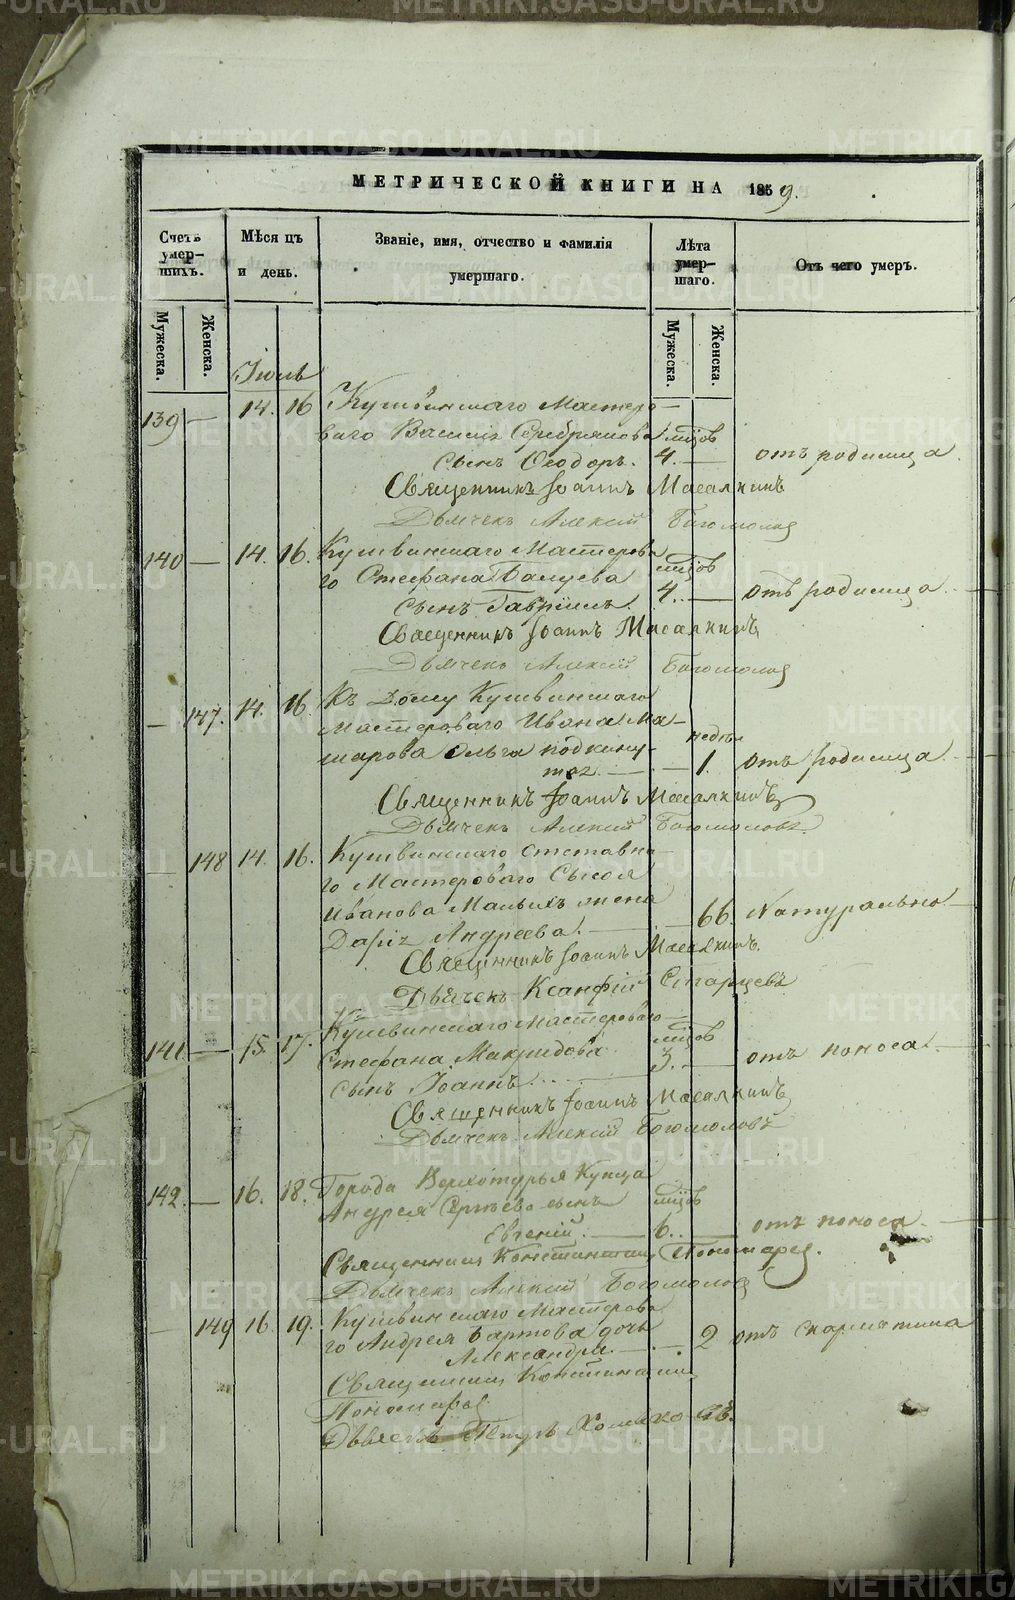 METRIKI.GASO-URAL.RU
МЕТРИЧЕСКОЙ КНИГИ НА 1859.
Счетъ умер-шихъ. Мѣсяцъ и день. Званіе, имя, отчество и фамилія умершаго. Лѣта умер-шаго. Отъ чего умеръ.
Мужеска. Женска. Мужеска. Женска.
Іюль
139 — 14. 16 Кушвинскаго Мастеро-
ваго Василія Серебрякова мцов
сынъ Ѳеодоръ. 4. — отъ родимца.
Священникъ Іоаннъ Масалкинъ
Дьячекъ Алексій Богомолов
140 — 14. 16. Кушвинскаго Мастерова
го Стефана сынъ Гавріилъ. мцов 4. — отъ родимца.
Священникъ Іоаннъ Масалкинъ
Дьячекъ Алексій Богомолов
— 147. 14. 16. Къ дому Кушвинскаго
Мастероваго Ивана Ма-
шарова Ольга подкину- недѣл
тая. — 1. отъ родимца.
Священникъ Іоаннъ Масалкинъ
Дьячекъ Алексій Богомоловъ
— 148 14. 16. Кушвинскаго отставна-
го Мастероваго Сысоя
Иванова Малыхъ жена
Дарія Андреева. — 66. Натурально
Священникъ Іоаннъ Масалкинъ.
Дьячекъ Ксанфій Старцевъ
141 — 15. 17. Кушвинскаго мастероваго
Стефана мцов
сынъ Іоаннъ. 3. — отъ поноса.
Священникъ Іоаннъ Масалкинъ
Дьячекъ Алексій Богомоловъ
142. — 16. 18. Города Верхотурья Купца
Андрея Сергѣева сынъ мцов
Евгеній. — 6. — отъ поноса.
Священникъ Константинъ Пономарев.
Дьячекъ Алексій Богомолов
— 149 16 19. Кушвинскаго Мастерова
го Андрея дочь
Александра. — 2 отъ скарлатина
Священникъ Константинъ
Пономарев
Петръ